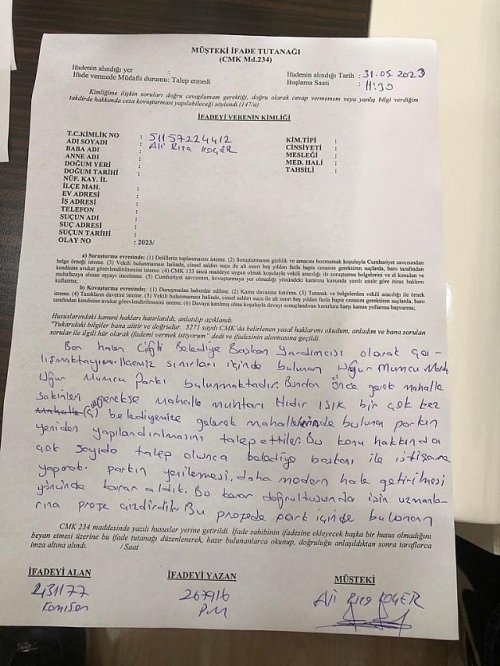 MÜŞTEKİ İFADE TUTANAĞI
(CMK Md.234)
İfadenin alındığı yer :
İfade vermede Müdafii durumu: Talep etmedi
İfadenin alındığı Tarih : 31.05.2023
Başlama Saati : 11:30
Kimliğine ilişkin soruları doğru cevaplaması gerektiği, doğru olarak cevap vermemesi veya yanlış bilgi verdiği
takdirde hakkında ceza kovuşturması yapılabileceği söylendi (147/a)
İFADEYİ VERENİN KİMLİĞİ
T.C.KİMLİK NO : 51157224412
ADI SOYADI : Ali Rıza KOÇER
BABA ADI :
ANNE ADI :
DOĞUM YERİ :
DOĞUM TARİHİ :
NÜF. KAY. İL :
İLÇE MAH. :
EV ADRESİ :
İŞ ADRESİ :
TELEFON :
SUÇUN ADI :
SUÇ ADRESİ :
SUÇUN TARİHİ :
OLAY NO : 2023/
KİM.TİPİ :
CİNSİYETİ :
MESLEĞİ :
MED. HALİ :
TAHSİLİ :
a) Soruşturma evresinde; (1) Delillerin toplanmasını isteme. (2) Soruşturmanın gizlilik ve amacını bozmamak koşuluyla Cumhuriyet savcısından
belge örneği isteme. (3) Vekili bulunmaması halinde, cinsel saldırı suçu ile alt sınırı beş yıldan fazla hapis cezasını gerektiren suçlarda, baro tarafından
kendisine avukat görevlendirilmesini isteme.
b) Kovuşturma evresinde; (1) Duruşmadan haberdar edilme. (2) Kamu davasına katılma. (3) Tutanak ve belgelerden vekili aracılığı ile örnek
isteme. (4) Tanıkların davetini isteme. (5) Vekili bulunmaması halinde, cinsel saldırı suçu ile alt sınırı beş yıldan fazla hapis cezasını gerektiren suçlarda, baro
tarafından kendisine avukat görevlendirilmesini isteme.
Hususlarındaki kanuni hakları hatırlatıldı, anlatılıp açıklandı.
"Yukarıdaki bilgiler bana aittir ve doğrudur. 5271 sayılı CMK'da belirlenen yasal haklarımı okudum, anladım ve bana sorulan
sorular ile ilgili hür olarak ifademi vermek istiyorum" dedi ve ifadesinin alınmasına geçildi.
Ben halen Çiğli Belediye Başkan Yardımcısı olarak ça-
lışmaktayım. İlçemiz sınırları içinde bulunan Uğur Mumcu
Uğur Mumcu Parkı bulunmaktadır. Bundan önce gerek mahalle
sakinleri gerekse Mahalle muhtarı Hıdır IŞIK bir çok kez
belediyemize gelerek mahallelerinde bulunan parkın
yeniden yapılandırılmasını talep ettiler. Bu konu hakkında
çok sayıda talep olunca belediye başkanı ile istişare
yaparak parkın yenilemesi, daha modern hale getirilmesi
yönünde karar aldık. Bu karar doğrultusunda işin uzmanla-
rına proje çizdirdik. Bu projede park içinde bulunan
CMK 234 maddesinde yazılı hususlar yerine getirildi. İfade sahibinin ifadesine ekleyecek başka bir husus olmadığını
beyan etmesi üzerine bu ifade tutanağı düzenlenerek, hazır bulunanlarca okunup, doğruluğu anlaşıldıktan sonra taraflarca
imza altına alındı. / /Saat
İFADEYİ ALAN
İFADEYİ YAZAN
MÜŞTEKİ
231177
Komiser
267916
P.M
Ali Rıza KOÇER